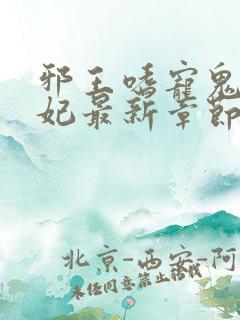 邪王嗜寵鬼
妃最新章節
北京-西安-阿
未经同意禁止转载